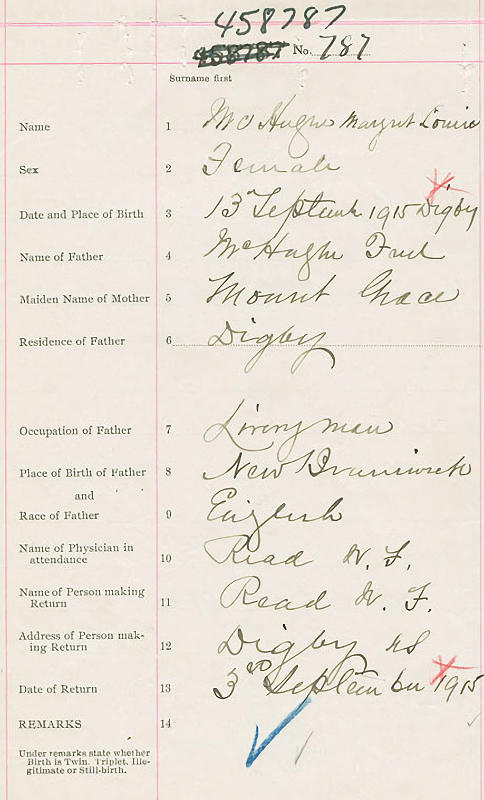 458787
458787 No. 787
Surname first
Name 1 McHughe Margret Louise
Sex 2 Female
Date and Place of Birth 3 13th September 1915 Digby
Name of Father 4 McHughe Fred
Maiden Name of Mother 5 Mount Grace
Residence of Father 6 Digby
Occupation of Father 7 Liveryman
Place of Birth of Father 8 New Brunswick
and
Race of Father 9 English
Name of Physician in
attendance 10 Read W. F.
Name of Person making
Return 11 Read W. F.
Address of Person mak-
ing Return 12 Digby NS
Date of Return 13 3rd September 1915
REMARKS 14
Under remarks state whether
Birth is Twin, Triplet, Ille-
gitimate or Still-birth.